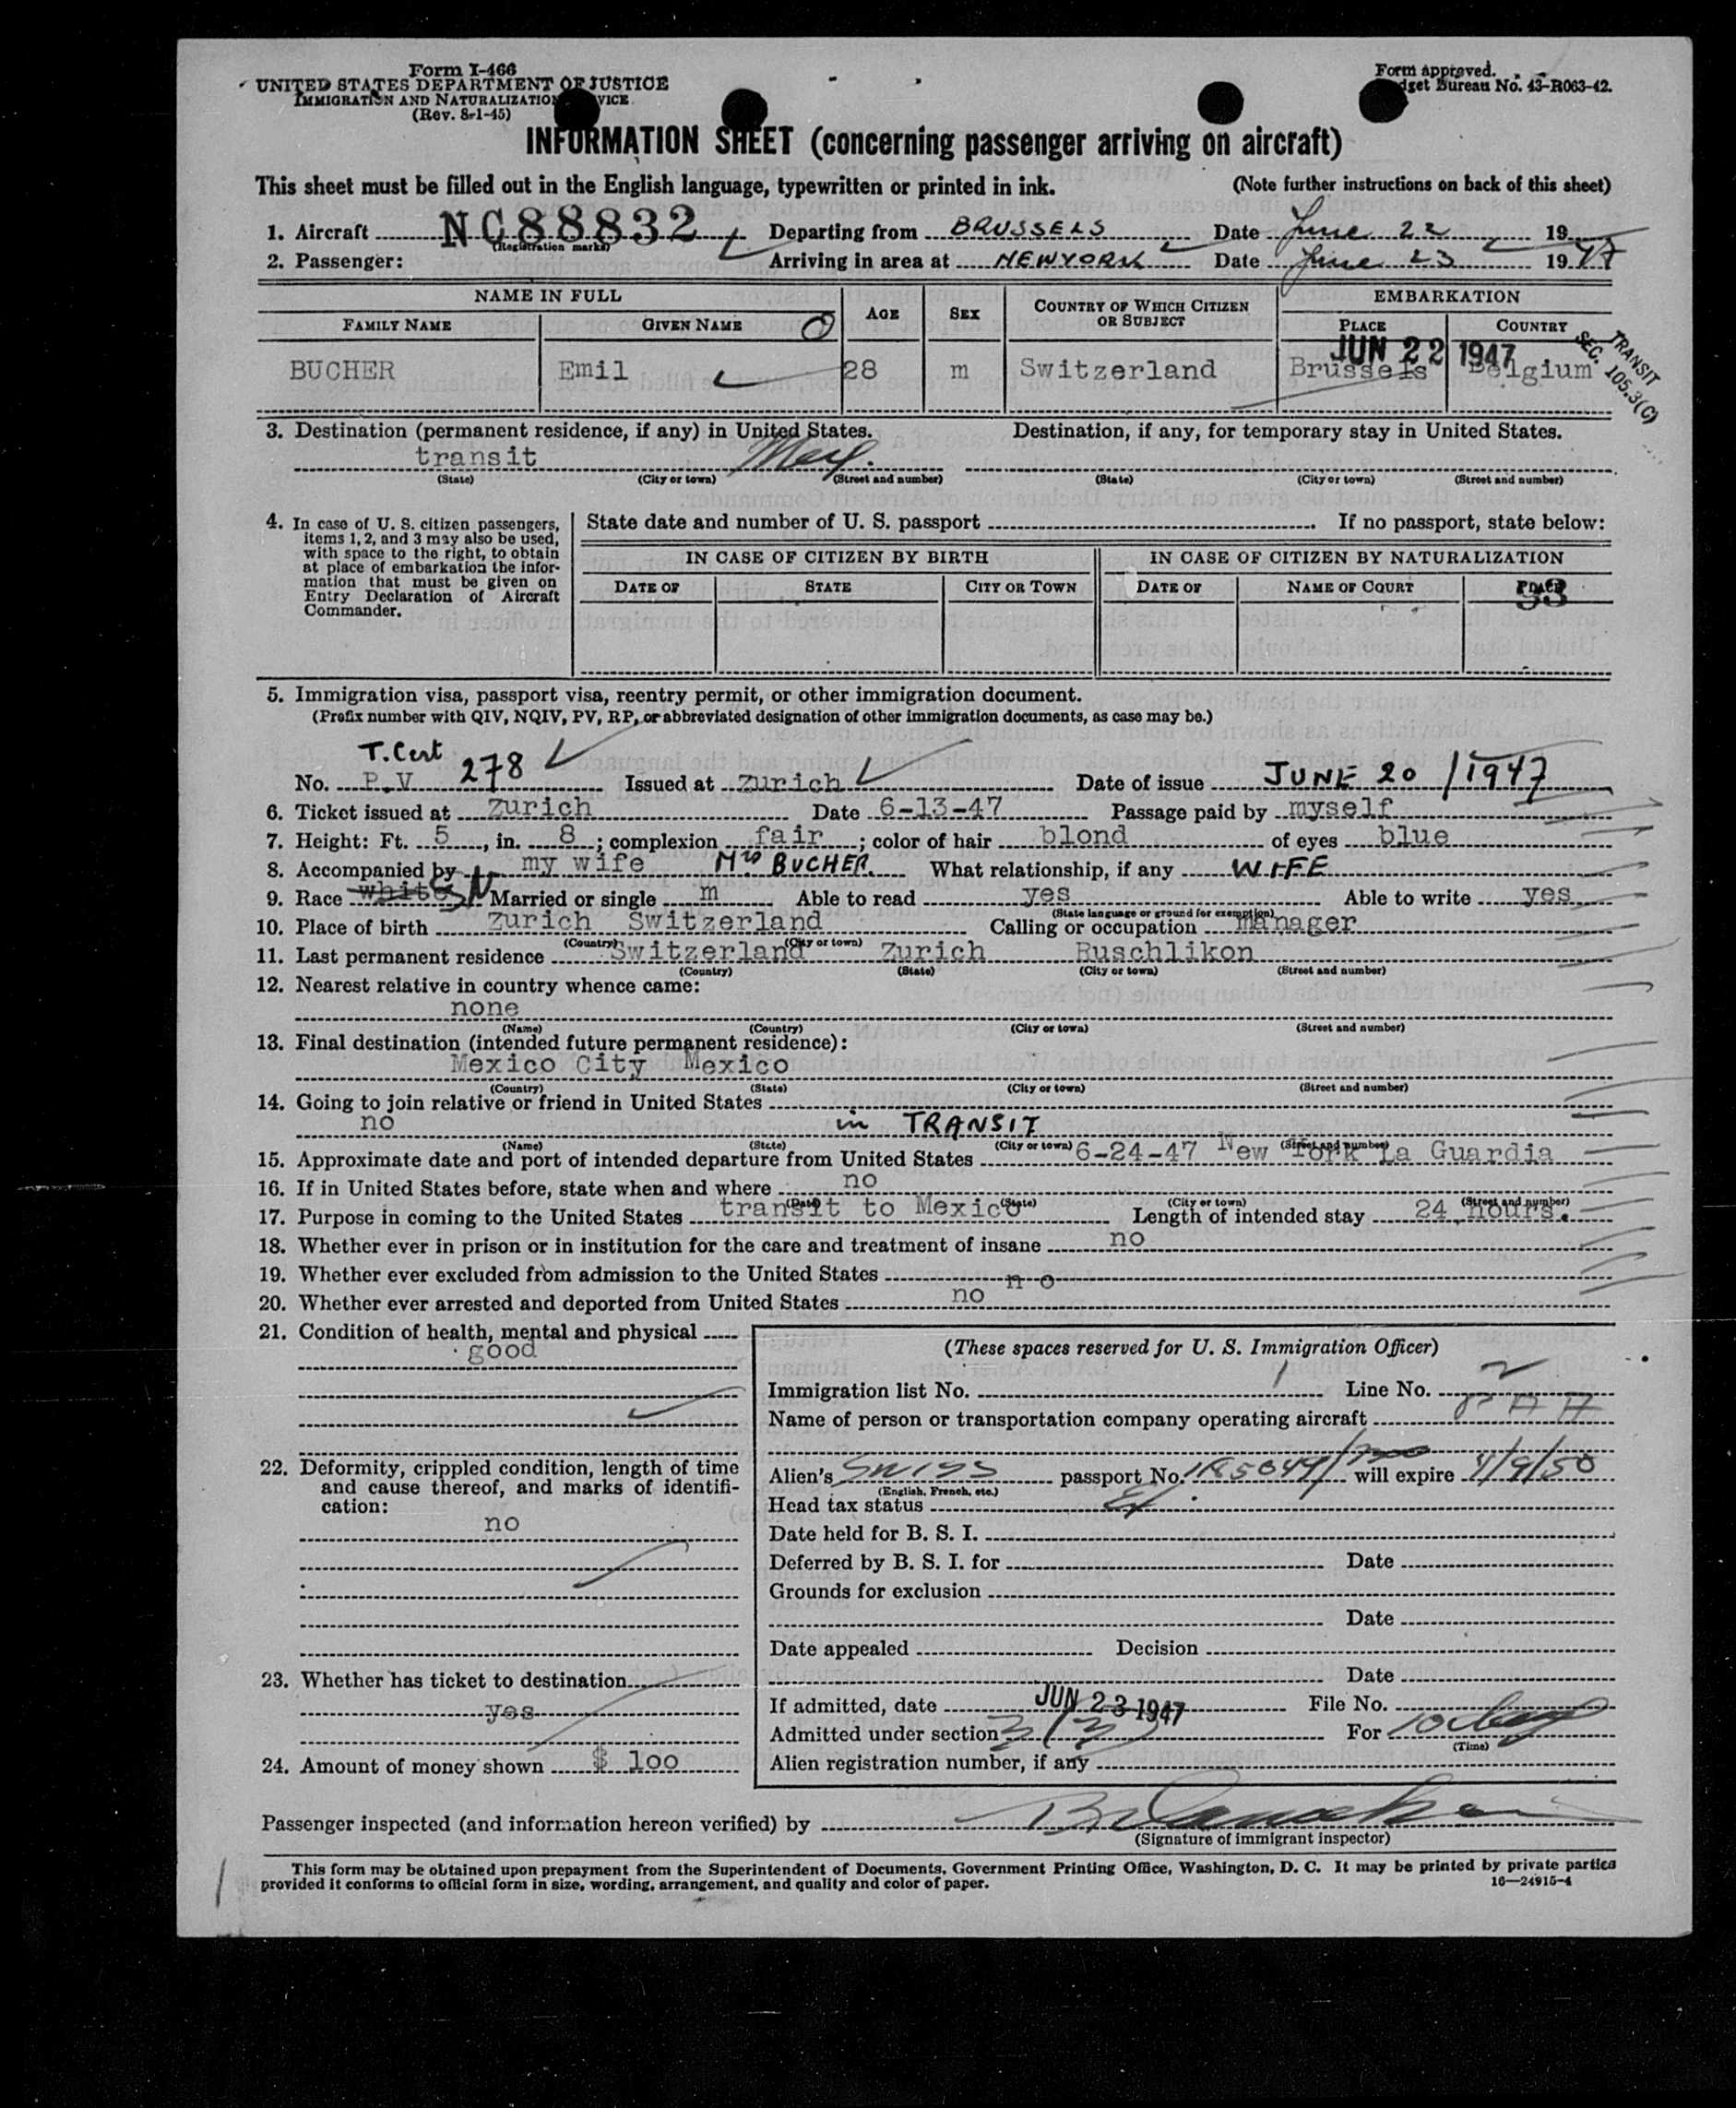 Form I-466
UNITED STATES DEPARTMENT OF JUSTICE
IMMIGRATION AND NATURALIZATION SERVICE
(Rev. 8-1-45)
Form approved.
Budget Bureau No. 43-R063-42.
INFORMATION SHEET (concerning passenger arriving on aircraft)
This sheet must be filled out in the English language, typewritten or printed in ink. (Note further instructions on back of this sheet)
1. Aircraft NC88832 Departing from BRUSSELS Date June 22 19
(Registration marks)
2. Passenger: Arriving in area at NEWYORK Date June 23 1947
NAME IN FULL AGE SEX COUNTRY OF WHICH CITIZEN OR SUBJECT EMBARKATION
FAMILY NAME GIVEN NAME PLACE COUNTRY
JUN 22 1947
TRANSIT
SEC. 105.3(C)
BUCHER Emil 28 m Switzerland Brussels Belgium
3. Destination (permanent residence, if any) in United States. Destination, if any, for temporary stay in United States.
transit Mex.
(State) (City or town) (Street and number) (State) (City or town) (Street and number)
4. In case of U. S. citizen passengers, items 1, 2, and 3 may also be used, with space to the right, to obtain at place of embarkation the information that must be given on Entry Declaration of Aircraft Commander.
State date and number of U. S. passport . If no passport, state below:
IN CASE OF CITIZEN BY BIRTH IN CASE OF CITIZEN BY NATURALIZATION
DATE OF STATE CITY OR TOWN DATE OF NAME OF COURT PLACE
5. Immigration visa, passport visa, reentry permit, or other immigration document.
(Prefix number with QIV, NQIV, PV, RP, or abbreviated designation of other immigration documents, as case may be.)
T. Cert
No. P.V. 278 Issued at Zurich Date of issue JUNE 20 / 1947
6. Ticket issued at Zurich Date 6-13-47 Passage paid by myself
7. Height: Ft. 5, in. 8; complexion fair; color of hair blond of eyes blue
8. Accompanied by my wife Mrs BUCHER. What relationship, if any WIFE
9. Race white Married or single m Able to read yes Able to write yes
(State language or ground for exemption)
10. Place of birth Zurich Switzerland Calling or occupation manager
(Country) (City or town)
11. Last permanent residence Switzerland Zurich Ruschlikon
(Country) (State) (City or town) (Street and number)
12. Nearest relative in country whence came:
none
(Name) (Country) (City or town) (Street and number)
13. Final destination (intended future permanent residence):
Mexico City Mexico
(Country) (State) (City or town) (Street and number)
14. Going to join relative or friend in United States
no in TRANSIT
(Name) (State) (City or town) (Street and number)
15. Approximate date and port of intended departure from United States 6-24-47 New York La Guardia
16. If in United States before, state when and where no
(Date) (State) (City or town) (Street and number)
17. Purpose in coming to the United States transit to Mexico Length of intended stay 24 hours.
18. Whether ever in prison or in institution for the care and treatment of insane no
19. Whether ever excluded from admission to the United States no
20. Whether ever arrested and deported from United States no
21. Condition of health, mental and physical
good
22. Deformity, crippled condition, length of time
and cause thereof, and marks of identifi-
cation:
no
23. Whether has ticket to destination
yes
24. Amount of money shown $ 100
(These spaces reserved for U. S. Immigration Officer)
Immigration list No. 1 Line No. 2
Name of person or transportation company operating aircraft PAA
Alien's Swiss passport No. will expire
(English, French, etc.)
Head tax status
Date held for B. S. I.
Deferred by B. S. I. for Date
Grounds for exclusion
Date
Date appealed Decision
Date
If admitted, date JUN 23 1947 File No.
Admitted under section 3(3) For 10 days
(Time)
Alien registration number, if any
Passenger inspected (and information hereon verified) by
(Signature of immigrant inspector)
This form may be obtained upon prepayment from the Superintendent of Documents, Government Printing Office, Washington, D. C. It may be printed by private parties
provided it conforms to official form in size, wording, arrangement, and quality and color of paper. 16—24915-4